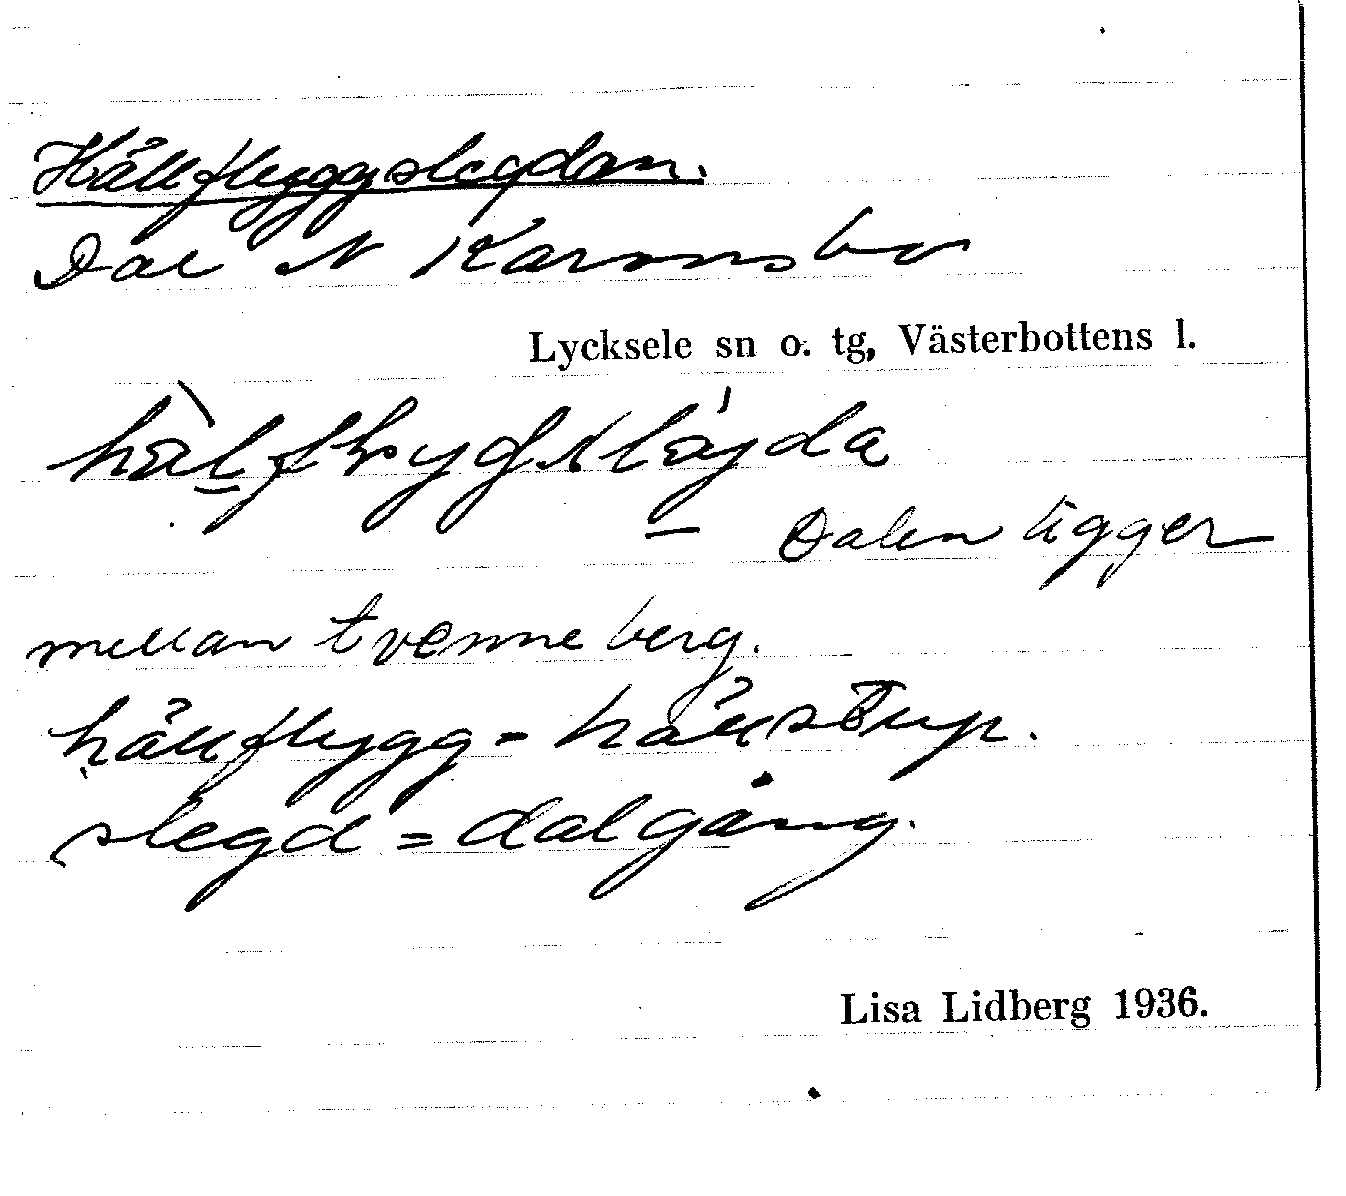 Hällflyggslegdan.
Dal N Karvnsbo
Lycksele sn o. tg, Västerbottens l.
Dalen ligger
mellan tvenne berg.
hällflygg = hällstup.
slegd = dalgång.
Lisa Lidberg 1936.